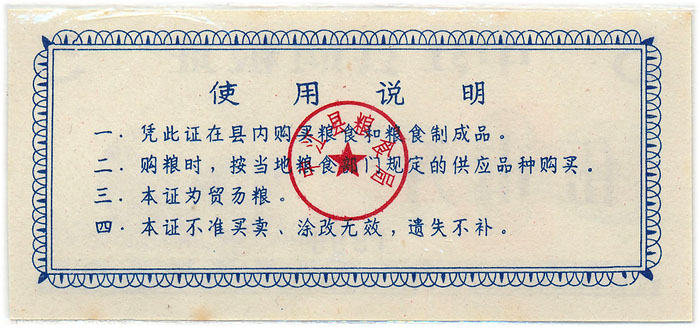 使用说明
一．凭此证在县内购买粮食和粮食制成品。
二．购粮时，按当地粮食部门规定的供应品种购买。
三．本证为贸易粮。
四．本证不准买卖、涂改无效，遗失不补。
中江县粮食局